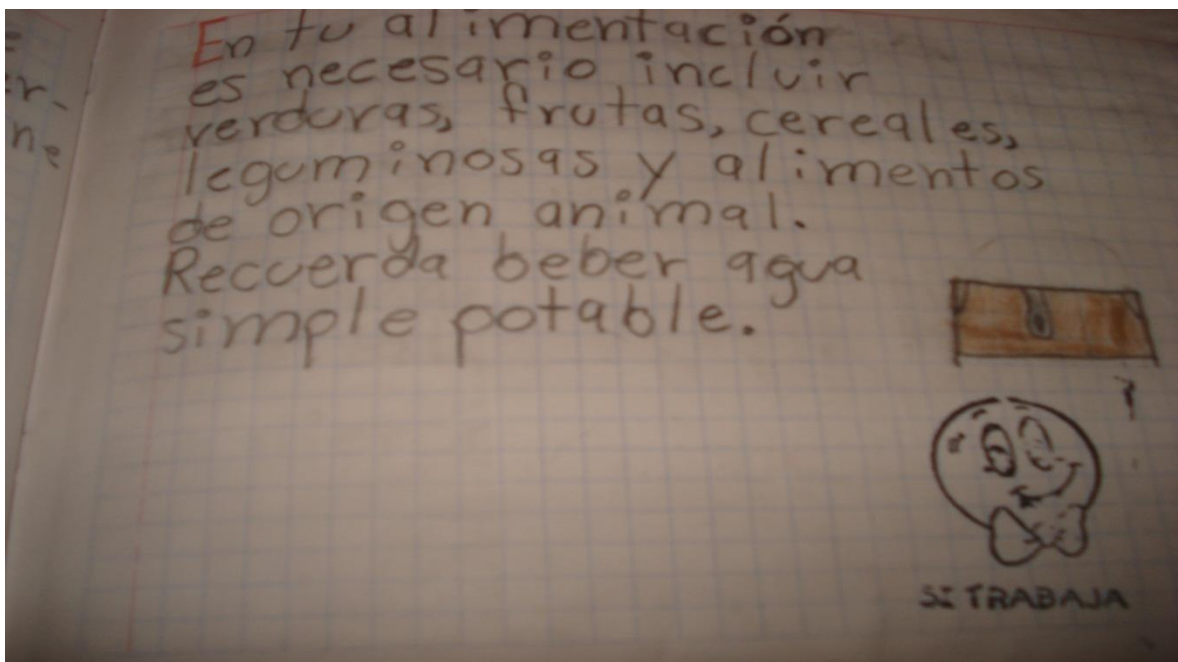 En tu alimentación
es necesario incluir
verduras, frutas, cereales,
leguminosas y alimentos
de origen animal.
Recuerda beber agua
simple potable.
SI TRABAJA